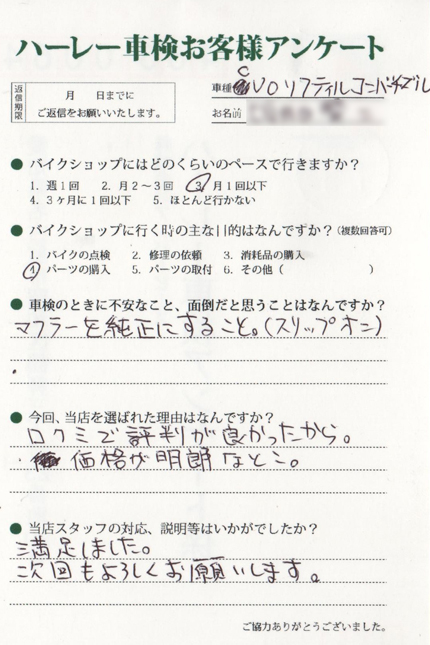 ハーレー車検お客様アンケート
返信期限
月 日までに
ご返信をお願いいたします。
車種 CVOソフティルコンバーチブル
お名前
● バイクショップにはどのくらいのペースで行きますか?
1. 週1回 2. 月2~3回 3. 月1回以下
4. 3ヶ月に1回以下 5. ほとんど行かない
● バイクショップに行く時の主な目的はなんですか?(複数回答可)
1. バイクの点検 2. 修理の依頼 3. 消耗品の購入
4. パーツの購入 5. パーツの取付 6. その他( )
● 車検のときに不安なこと、面倒だと思うことはなんですか?
マフラーを純正にすること。(スリップオン)
● 今回、当店を選ばれた理由はなんですか?
口クミで評判が良かったから。
・価格が明朗なとこ。
● 当店スタッフの対応、説明等はいかがでしたか?
満足しました。
次回もよろしくお願いします。
ご協力ありがとうございました。